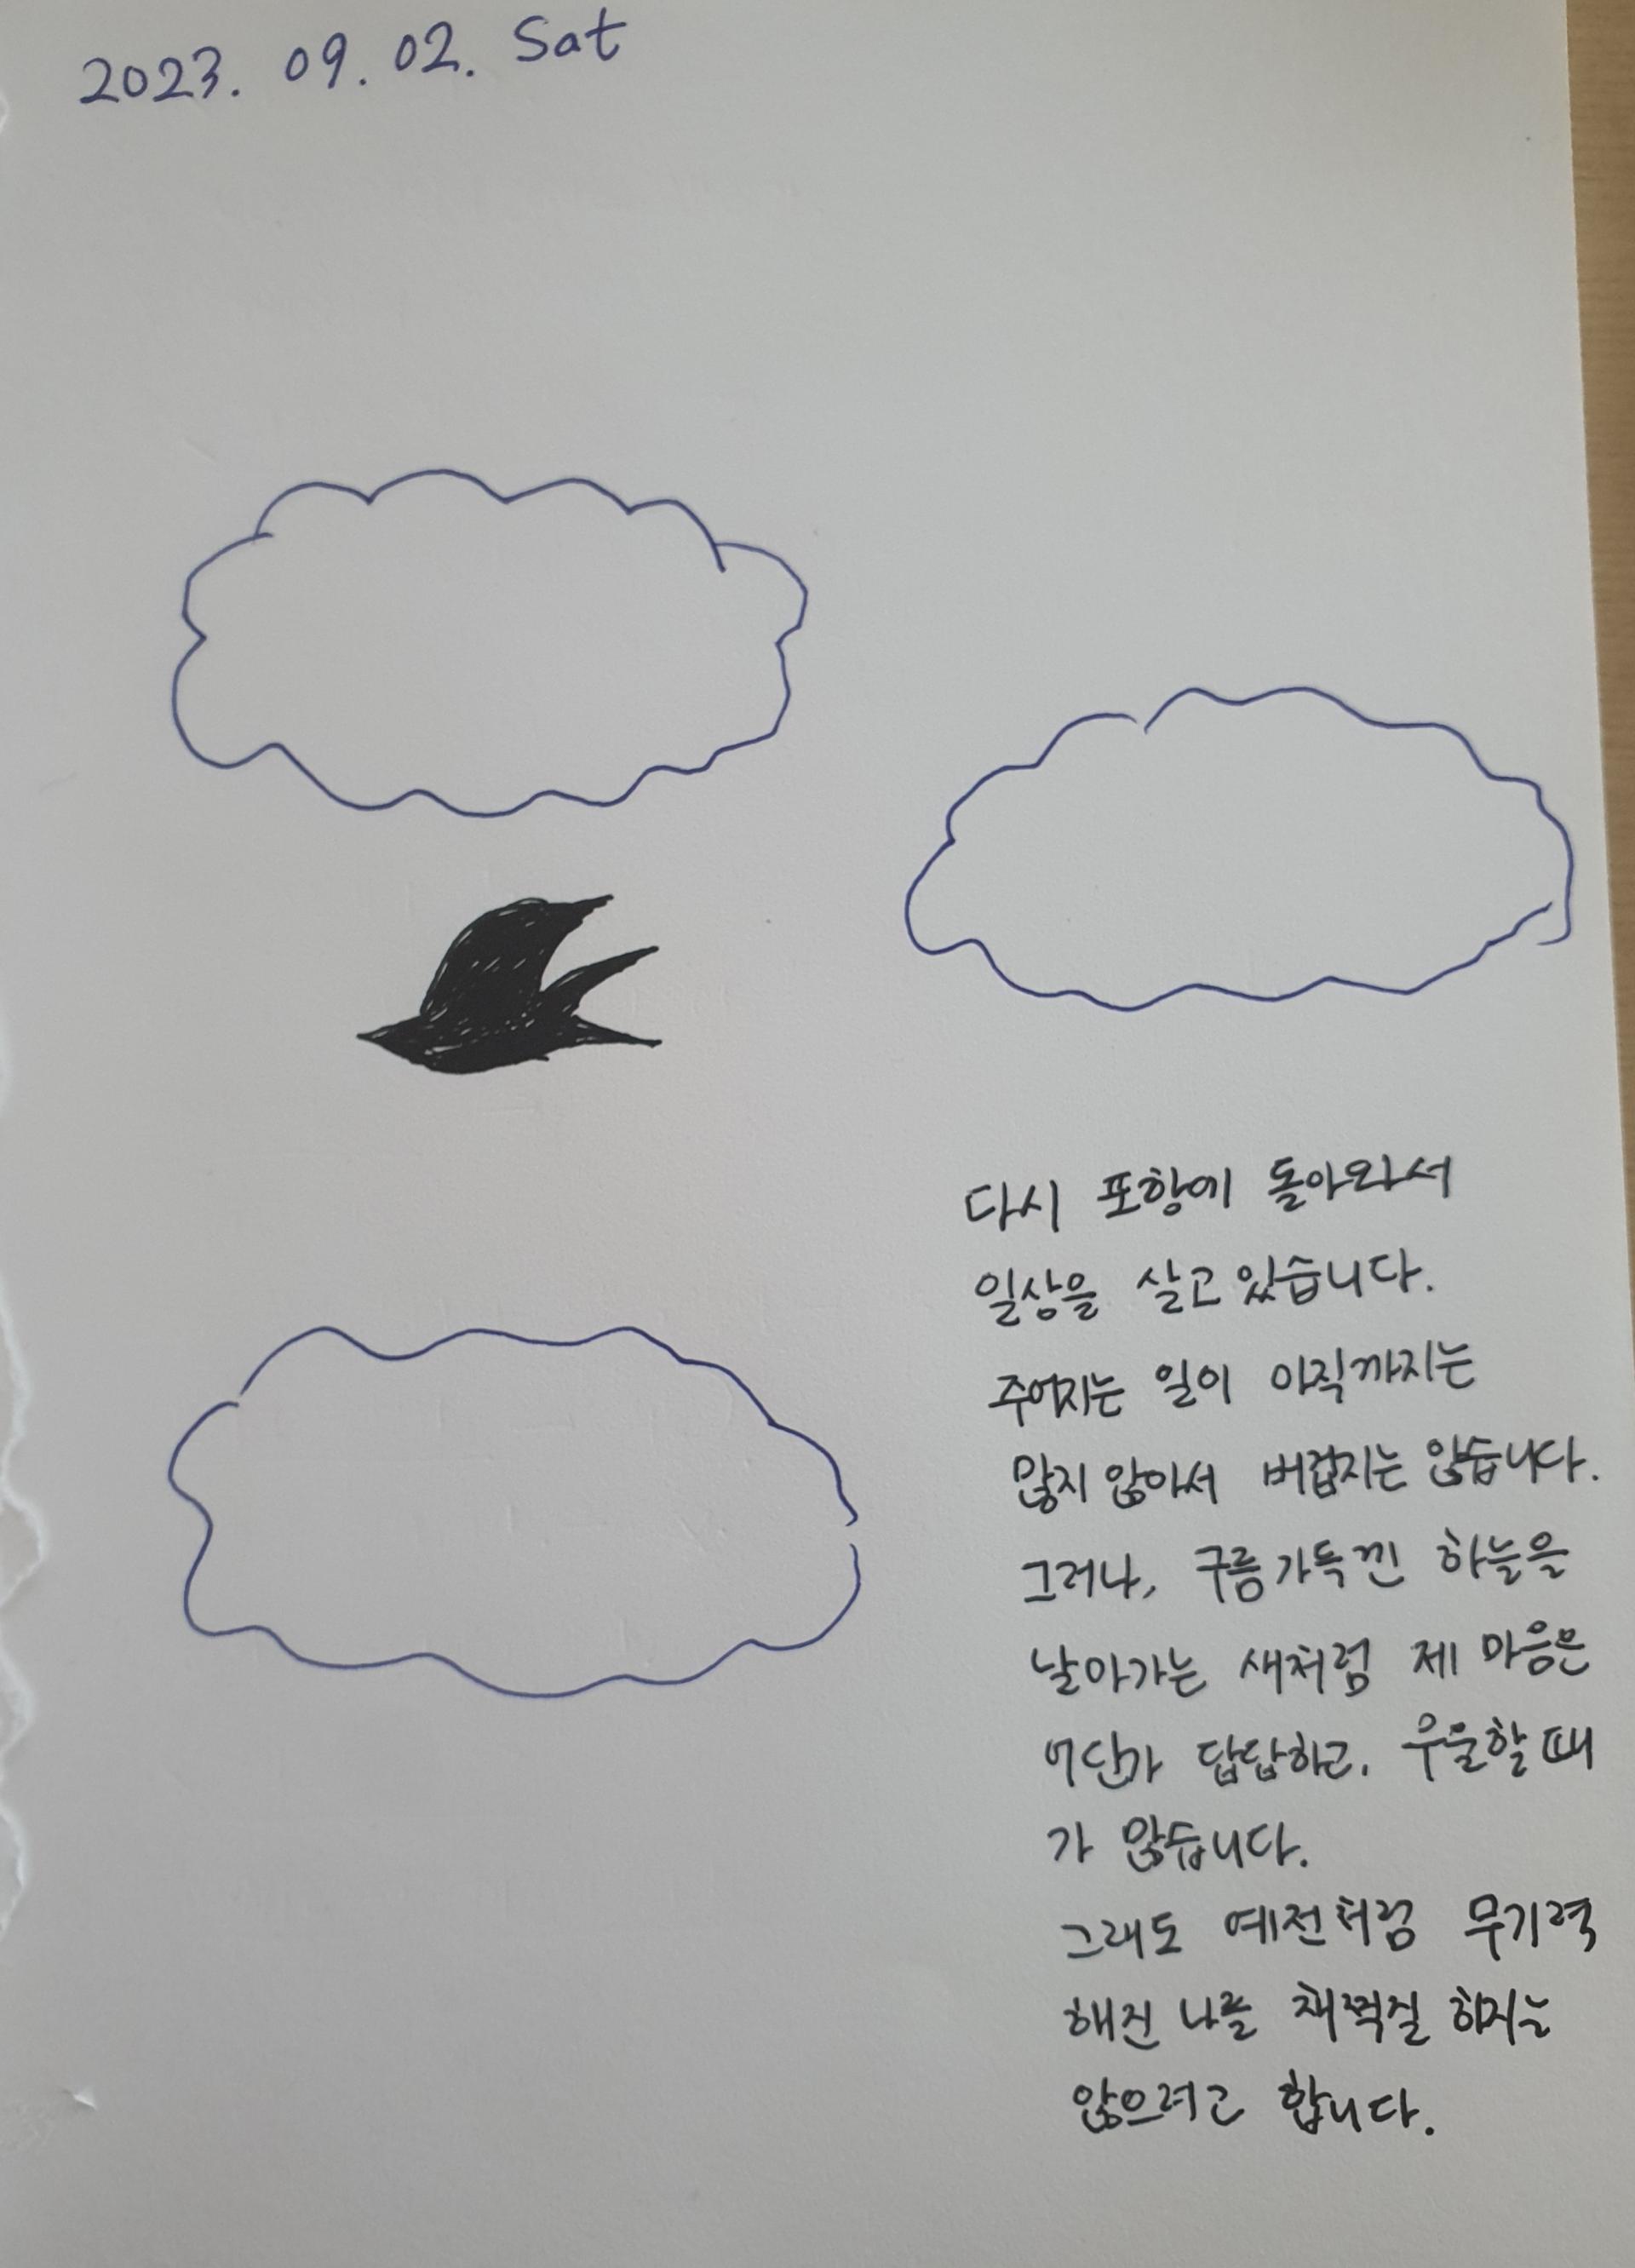 2023. 09. 02. Sat
다시 포항에 돌아와서
일상을 살고 있습니다.
주어지는 일이 아직까지는
많지 않아서 버겁지는 않습니다.
그러나, 구름 가득 낀 하늘을
날아가는 새처럼 제 마음은
어딘가 답답하고, 우울할 때
가 많습니다.
그래도 예전처럼 무기력
해진 나를 채찍질 하지는
않으려고 합니다.